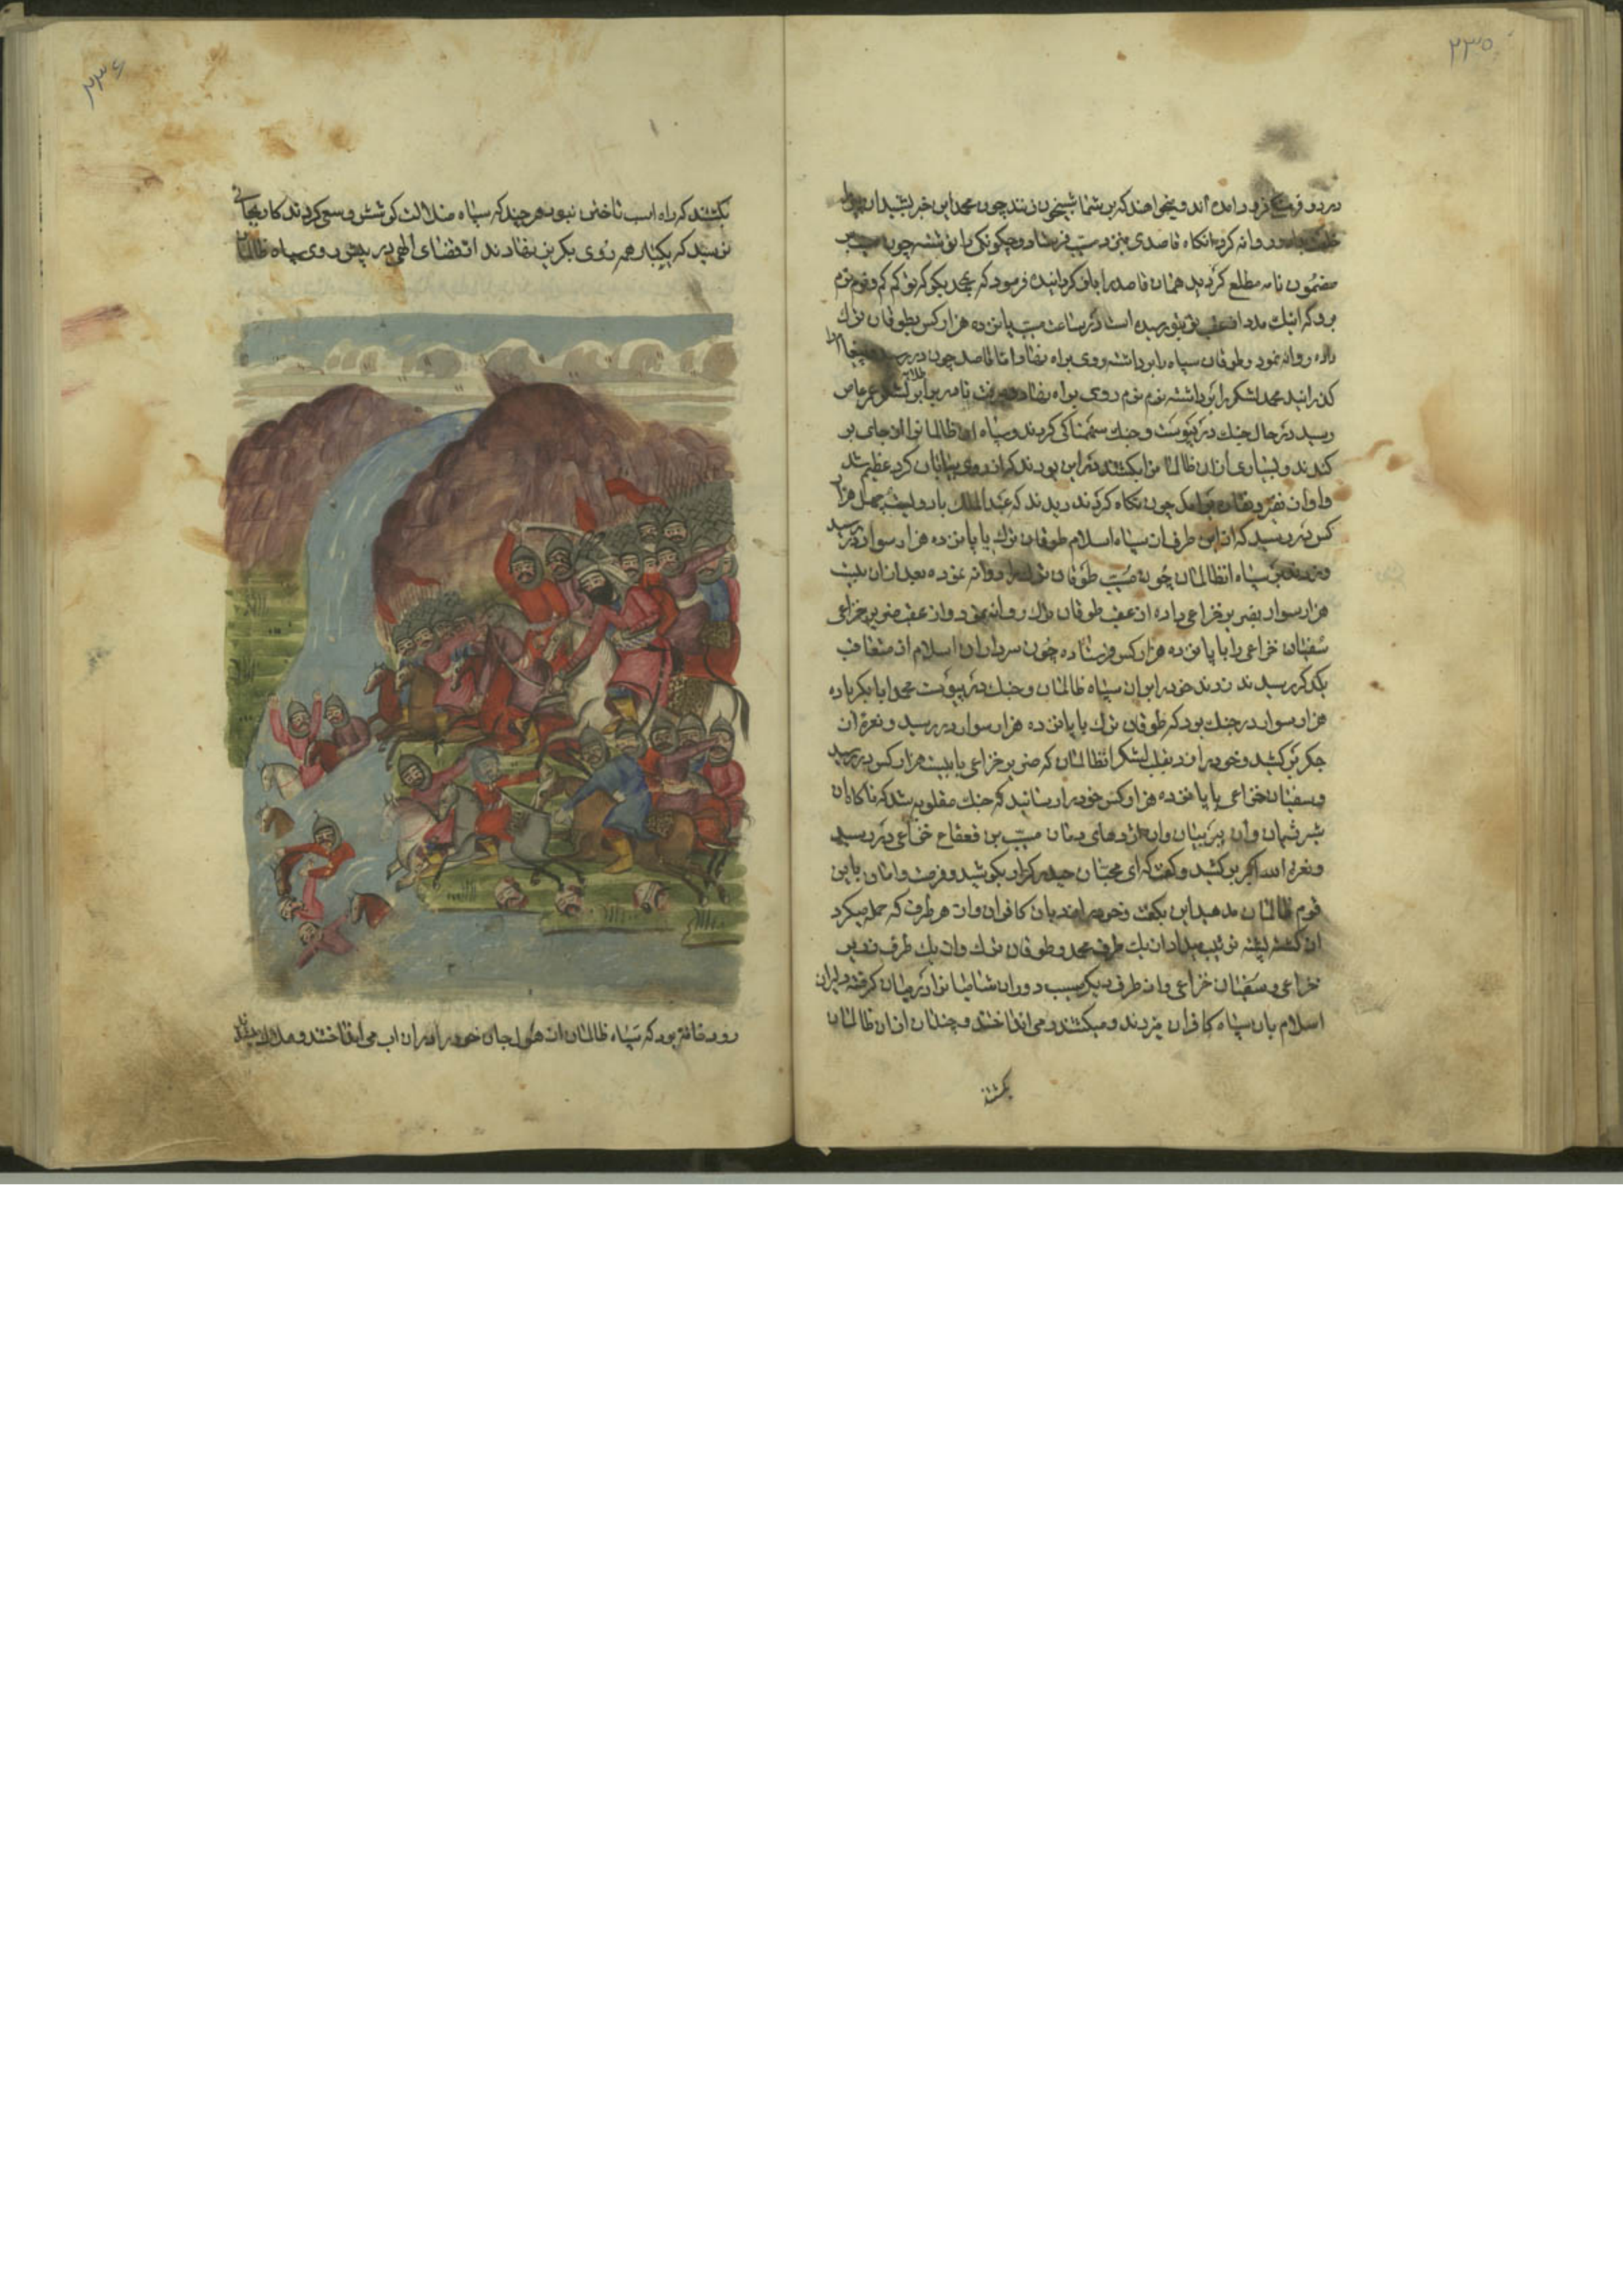 ۲۳۵
در دو فرسخ فرود آمده اند و میخواهند که بر شما شبیخون زنند چون محمد این خبر بشنید آن
روانه کرد انکاه قاصدی بنزد مسیب فرستاد و چکونکی را نوشته چون مسیب بر
مضمون نامه مطلع کردید همان قاصد را باز کردانید فرمود که بمحمد بکو که تو کم کم و نرم نرم
برو که اینک مدد از عقب تو رسیده است در ساعت مسیب پانزده هزار کس بطوقان ترک
داده روانه نمود و طوقان سپاه را برداشته روی براه نهاد و اما قاصد چون در رسید
کذرانید محمد لشکر را برداشته نرم نرم روی براه نهاد و برفت تا
رسید در حال جنک در پیوست و جنک سهمناکی کردند و سپاه ظالمانرا از جای بر
کندند و بسیاری از ان ظالمانرا بکشتند در این بودند که از روی بیابان کرد عظیم شد
واواز نفیر و چون نکاه کردند دیدند که عبدالملک با دویست چهل هزار
کس در رسید که از این طرف از سپاه اسلام طوقان ترک با پانزده هزار سوار در رسید
سپاه ظالمان چون مسیب طوقان ترک را روانه نموده بعد از ان بیست
هزار سوار بضریر خزاعی داده از عقب طوقان ترک روانه نمود و از عقب ضریر خزاعی
سفیان خزاعی را با پانزده هزار کس فرستاده چون سرداران اسلام از متعاقب
یکدکر رسیدند زدند خود را بران سپاه ظالمان و جنک در پیوست محمد ابا بکر با ده
هزار سوار در جنک بود که طوقان ترک با پانزده هزار سوار در رسید و نعره از
جکر بر کشید و خود را زد بقلب لشکر ظالمان که ضریر خزاعی با بیست هزار کس در رسید
و سفیان خزاعی با پانزده هزار کس خود را رسانید که جنک مغلوبه شد که ناکاه ان
شیر ژیان و ان ببر بیان و ان اژدهای دمان مسیب بن قعقاع خزاعی در رسید
و نعره الله اکبر بر کشید و کفت که ای محبان حیدر کرار بکوشید و فرصت و امان باین
قوم ظالمان مدهید این بکفت و خود را زد بان کافران و از هر طرف که حمله میکرد
از کشته پشته ترتیب میداد از یک طرف محمد و طوقان ترک و از یک طرف ضریر
خزاعی و سفیان خزاعی و از طرف دیکر مسیب دوران شامیانرا در میان کرفته دلیران
اسلام بان سپاه کافران میزدند و میکشتند و می انداختند و چندان از ان ظالمان
بکشتند
۲۳۶
بکشتند که راه اسب تاختن نبود هر چند که سپاه ضلالت کوشش و سعی کردند کار بجائی
نرسید که یکبار همه روی بکریز نهادند از قضای الهی در پیش روی سپاه ظالمان
رودخانه بود که سپاه ظالمان از هول جان خود را در ان اب می انداختند و هلاک میشدند